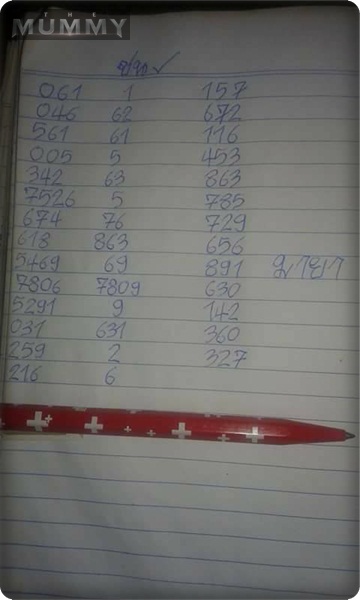 THE
MUMMY
061 1 157
046 62 672
561 61 116
005 5 453
342 63 863
7526 5 785
674 76 729
618 863 656
5469 69 891 มายา
7806 7809 630
5291 9 142
031 631 360
259 2 327
216 6